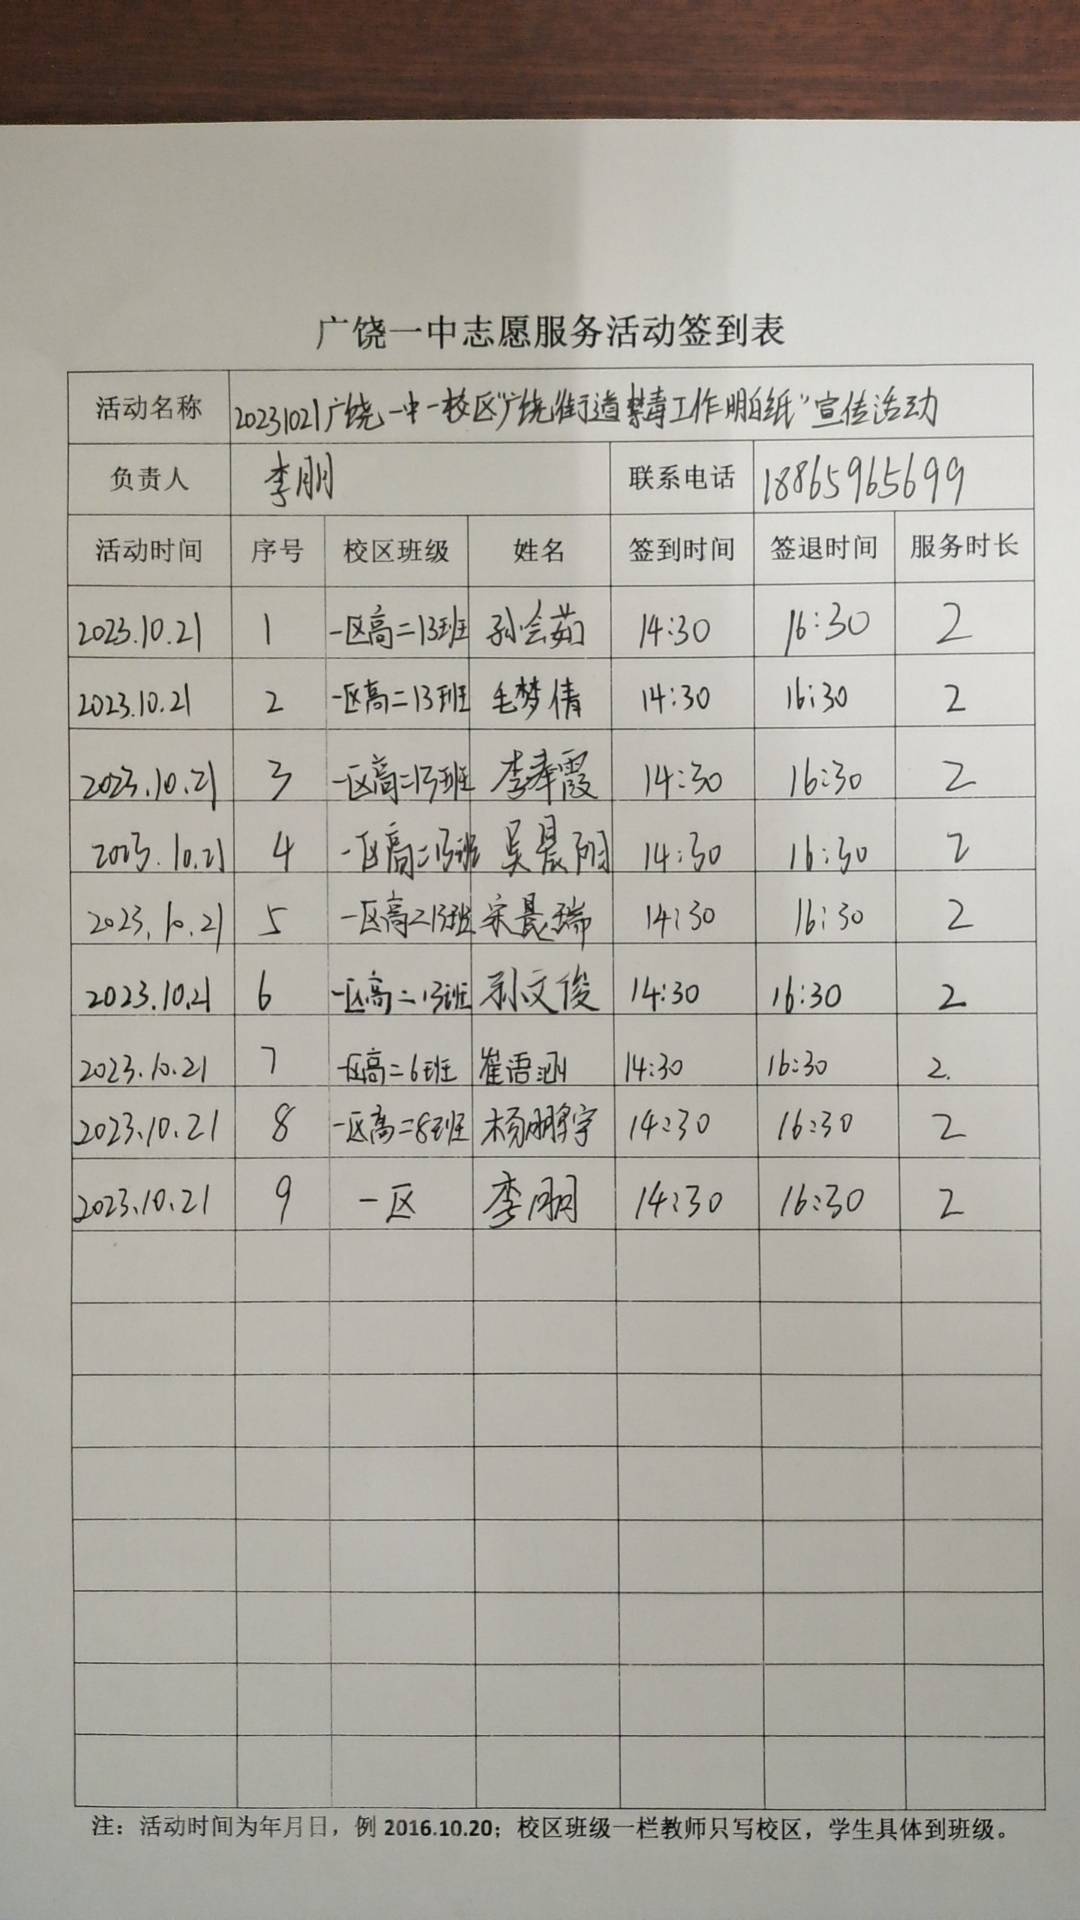 广饶一中志愿服务活动签到表
活动名称 20231021广饶一中一校区"广饶街道禁毒工作明白纸"宣传活动
负责人 李朋 联系电话 18865965699
活动时间 序号 校区班级 姓名 签到时间 签退时间 服务时长
2023.10.21 1 一区高二13班 孙会茹 14:30 16:30 2
2023.10.21 2 一区高二13班 毛梦倩 14:30 16:30 2
2023.10.21 3 一区高二13班 李奉霞 14:30 16:30 2
2023.10.21 4 一区高二13班 吴晨阳 14:30 16:30 2
2023.10.21 5 一区高二13班 宋晨瑞 14:30 16:30 2
2023.10.21 6 一区高二13班 孙文俊 14:30 16:30 2
2023.10.21 7 一区高二6班 崔语涵 14:30 16:30 2.
2023.10.21 8 一区高二8班 杨鹏宇 14:30 16:30 2
2023.10.21 9 一区 李朋 14:30 16:30 2
注：活动时间为年月日，例 2016.10.20；校区班级一栏教师只写校区，学生具体到班级。